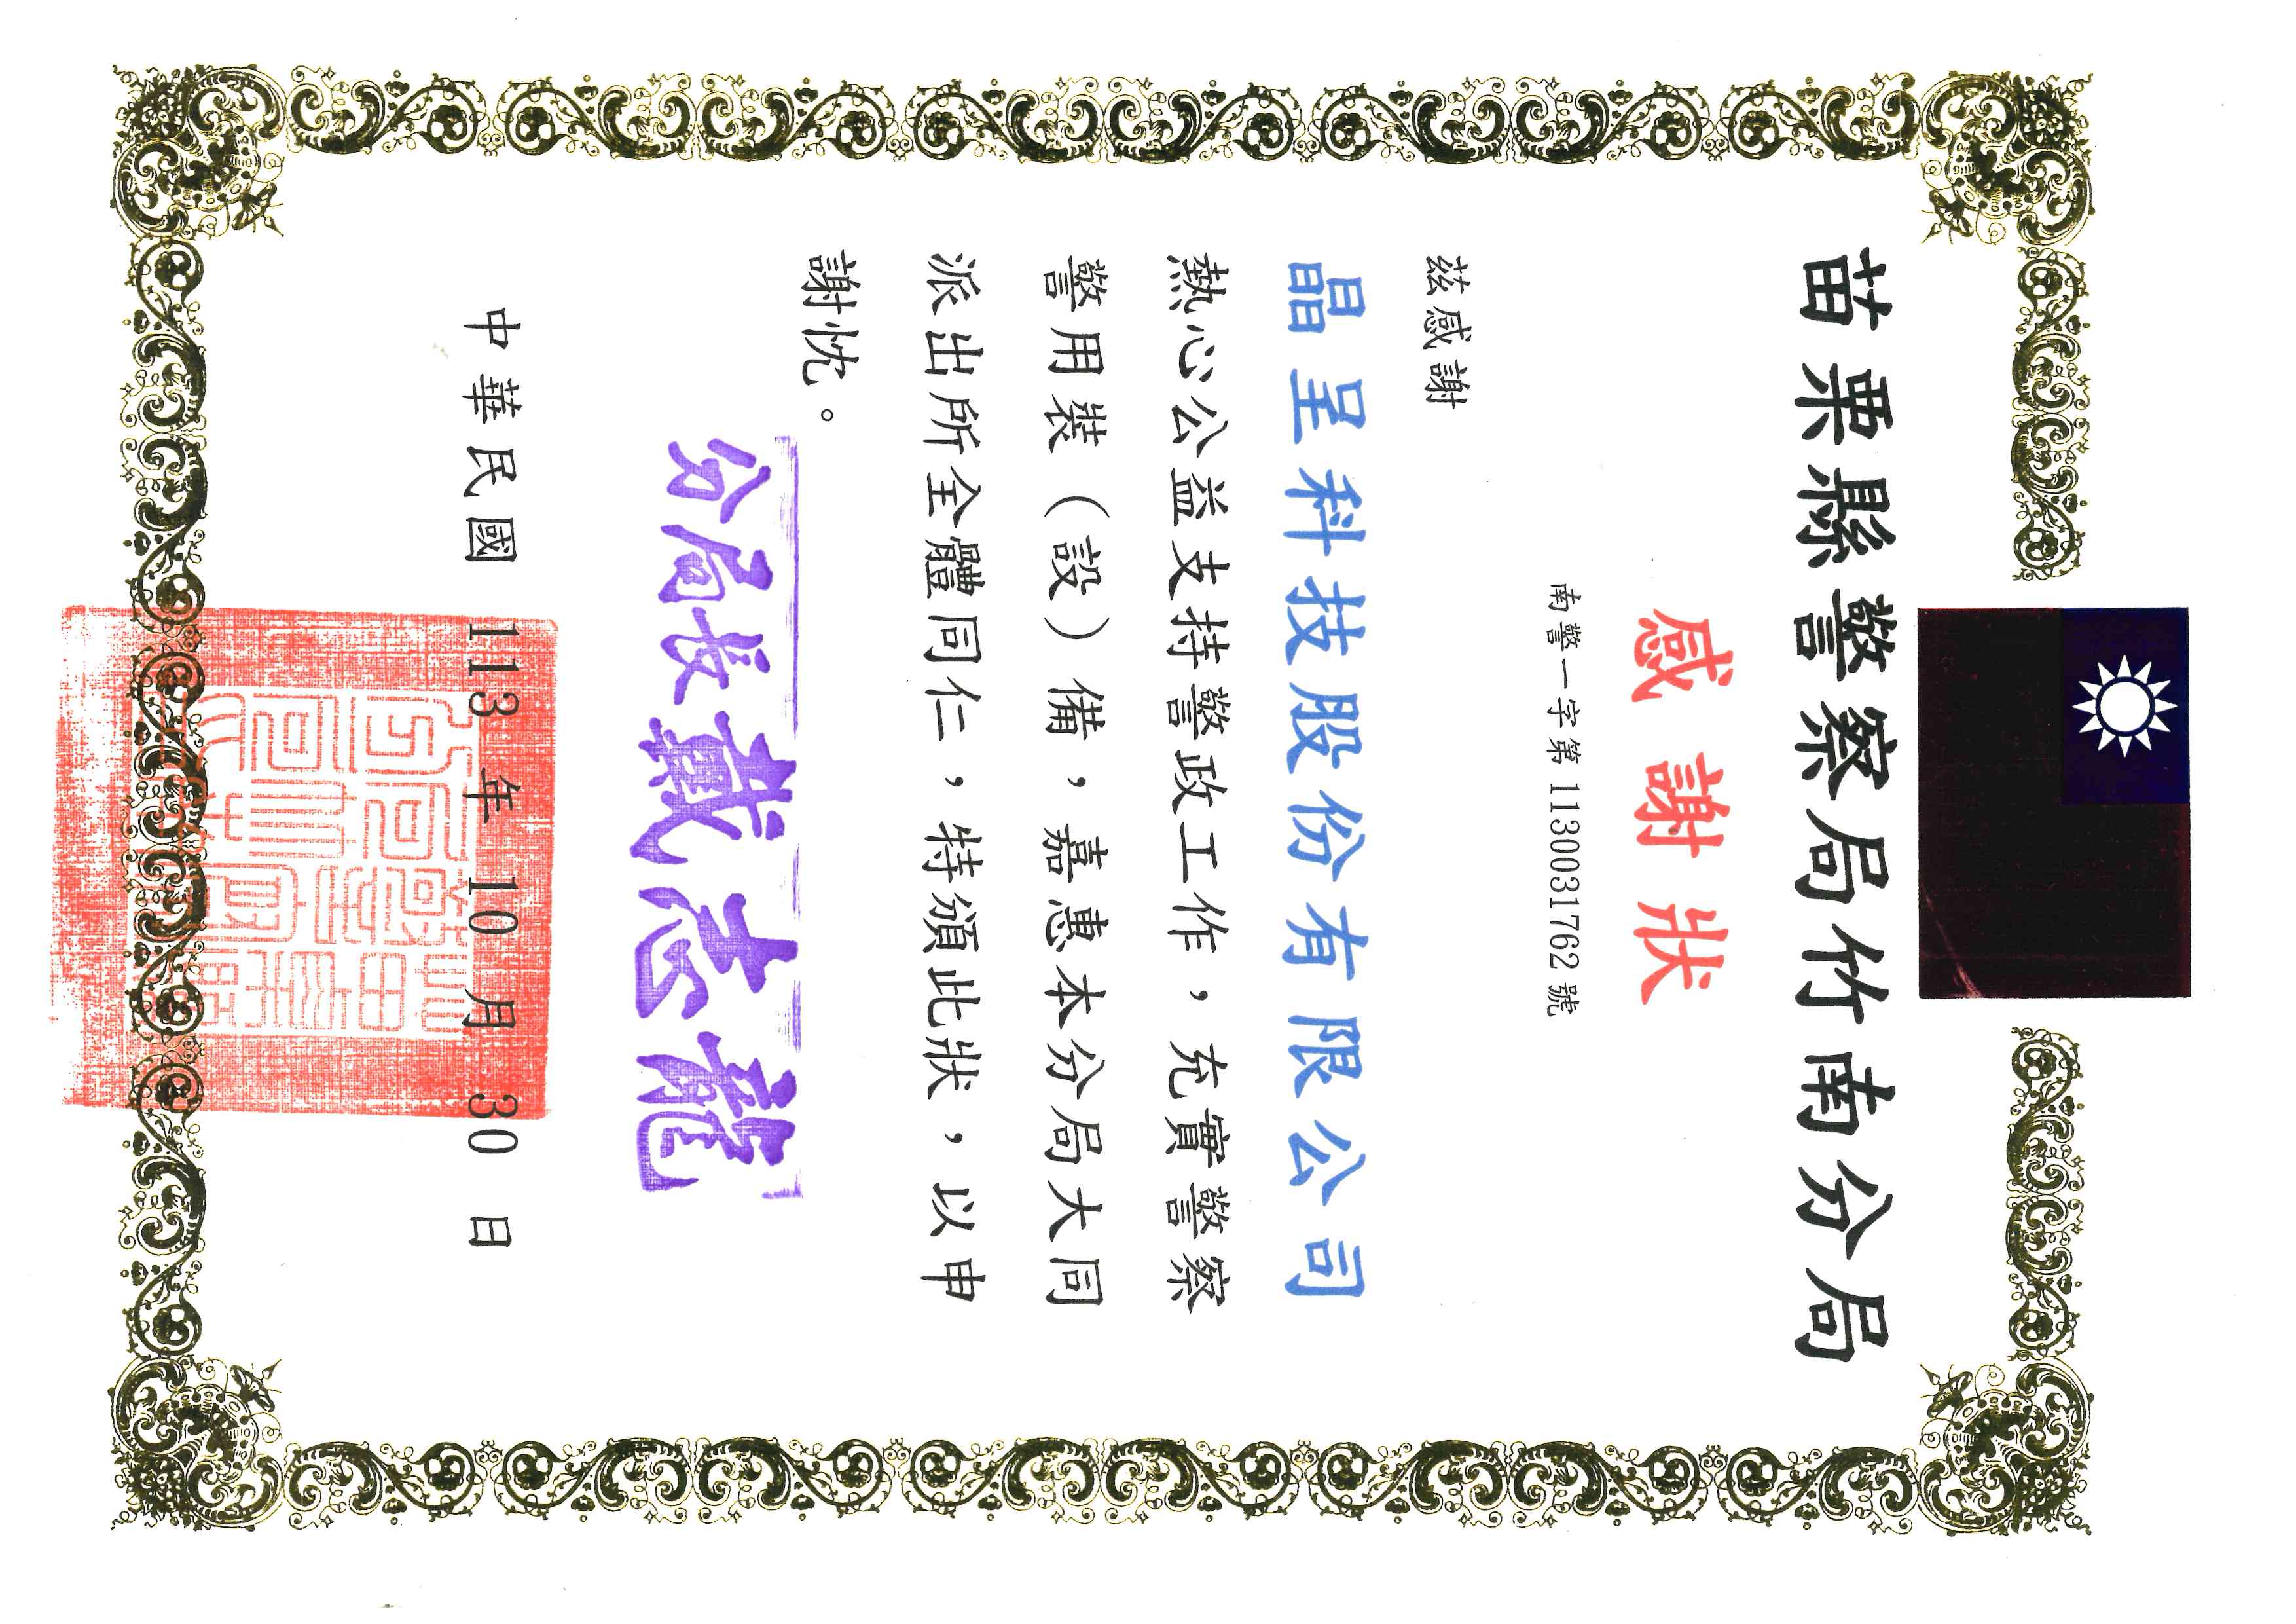 苗栗縣警察局竹南分局
感謝狀
南警一字第1130031762號
茲感謝
晶呈科技股份有限公司
熱心公益支持警政工作，充實警察
警用裝（設）備，嘉惠本分局大同
派出所全體同仁，特頒此狀，以申
謝忱。
分局長戴志龍
中華民國 113 年 10 月 30 日